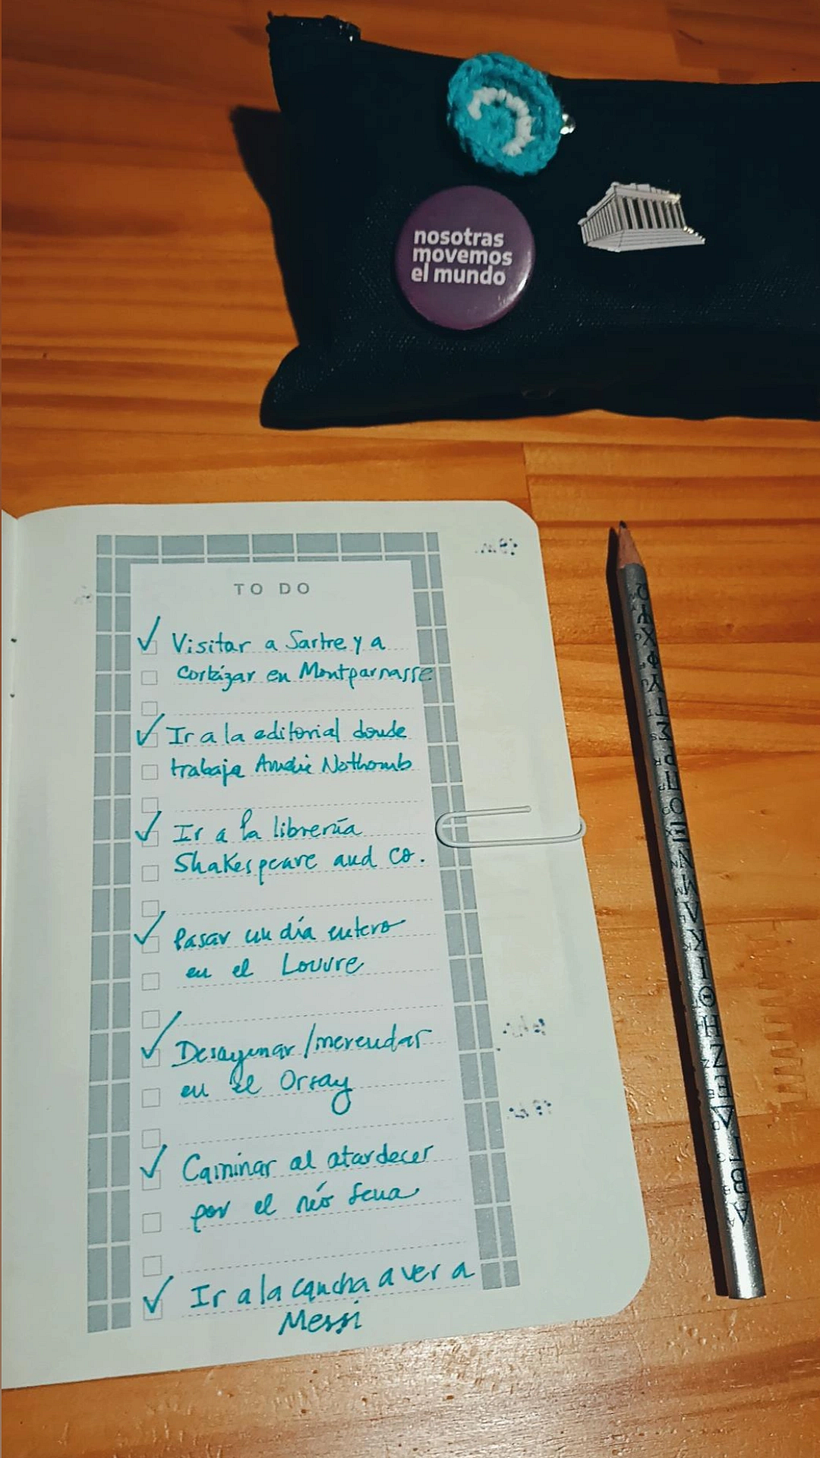 nosotras
movemos
el mundo
TO DO
Visitar a Sartre y a
Cortázar en Montparnasse
Ir a la editorial donde
trabaja Amélie Nothomb
Ir a la librería
Shakespeare and Co.
Pasar un día entero
en el Louvre
Desayunar/merendar
en el Orsay
Caminar al atardecer
por el río Sena
Ir a la cancha a ver a
Messi